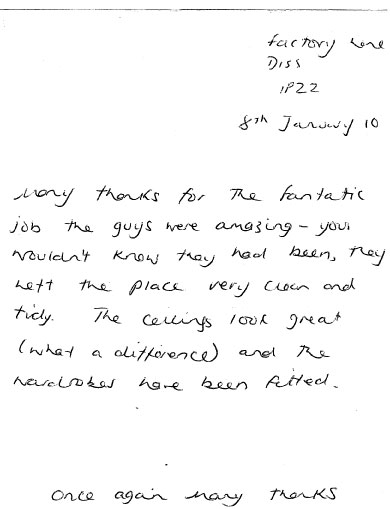 Factory Lane
Diss
IP22
8th January 10
Many thanks for the fantatic
job the guys were amazing - you
wouldn't know they had been, they
left the place very clean and
tidy. The ceilings look great
(what a difference) and the
wardrobes have been fitted.
Once again many thanks